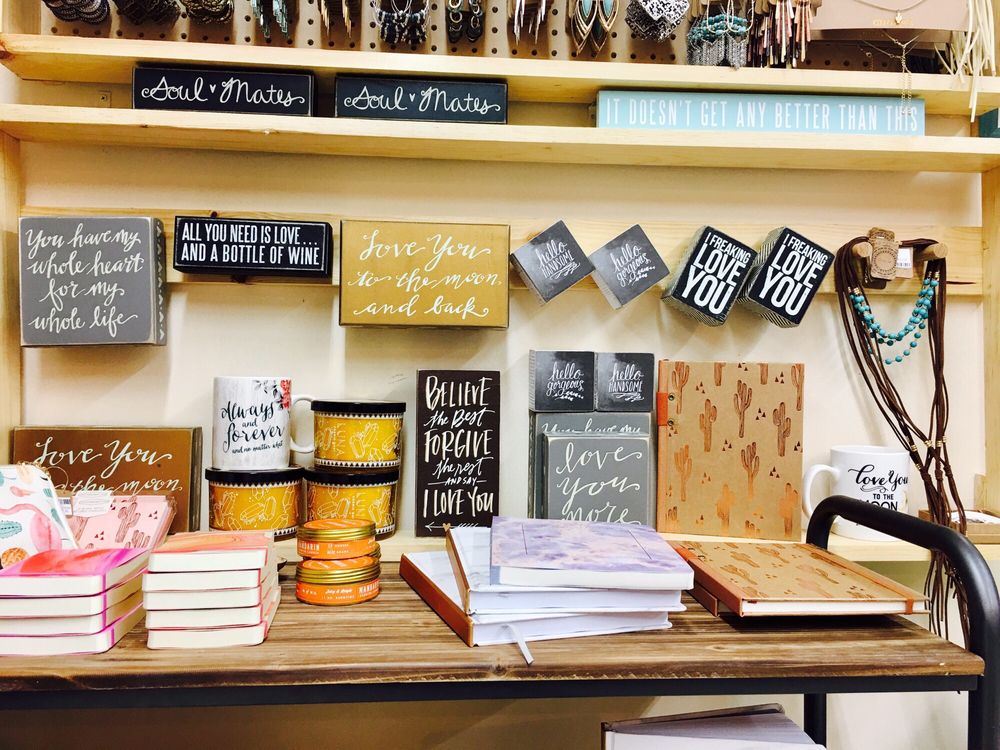 Soul Mates
Soul Mates
IT DOESN'T GET ANY BETTER THAN THIS
You have my
whole heart
for my
whole life
ALL YOU NEED IS LOVE...
AND A BOTTLE OF WINE
Love You
to the moon
and back
hello
HANDSOME
hello
gorgeous
I FREAKING
LOVE
YOU
I FREAKING
LOVE
YOU
Always
and
forever
and no matter what
BELIEVE
the BEST
FORGIVE
the rest
AND SAY
I LOVE YOU
hello
gorgeous
hello
HANDSOME
You have my
love
You
more
Love You
to the moon
Love You
TO THE
MOON
LUNA
LUNA
MANDARIN
MANDARIN